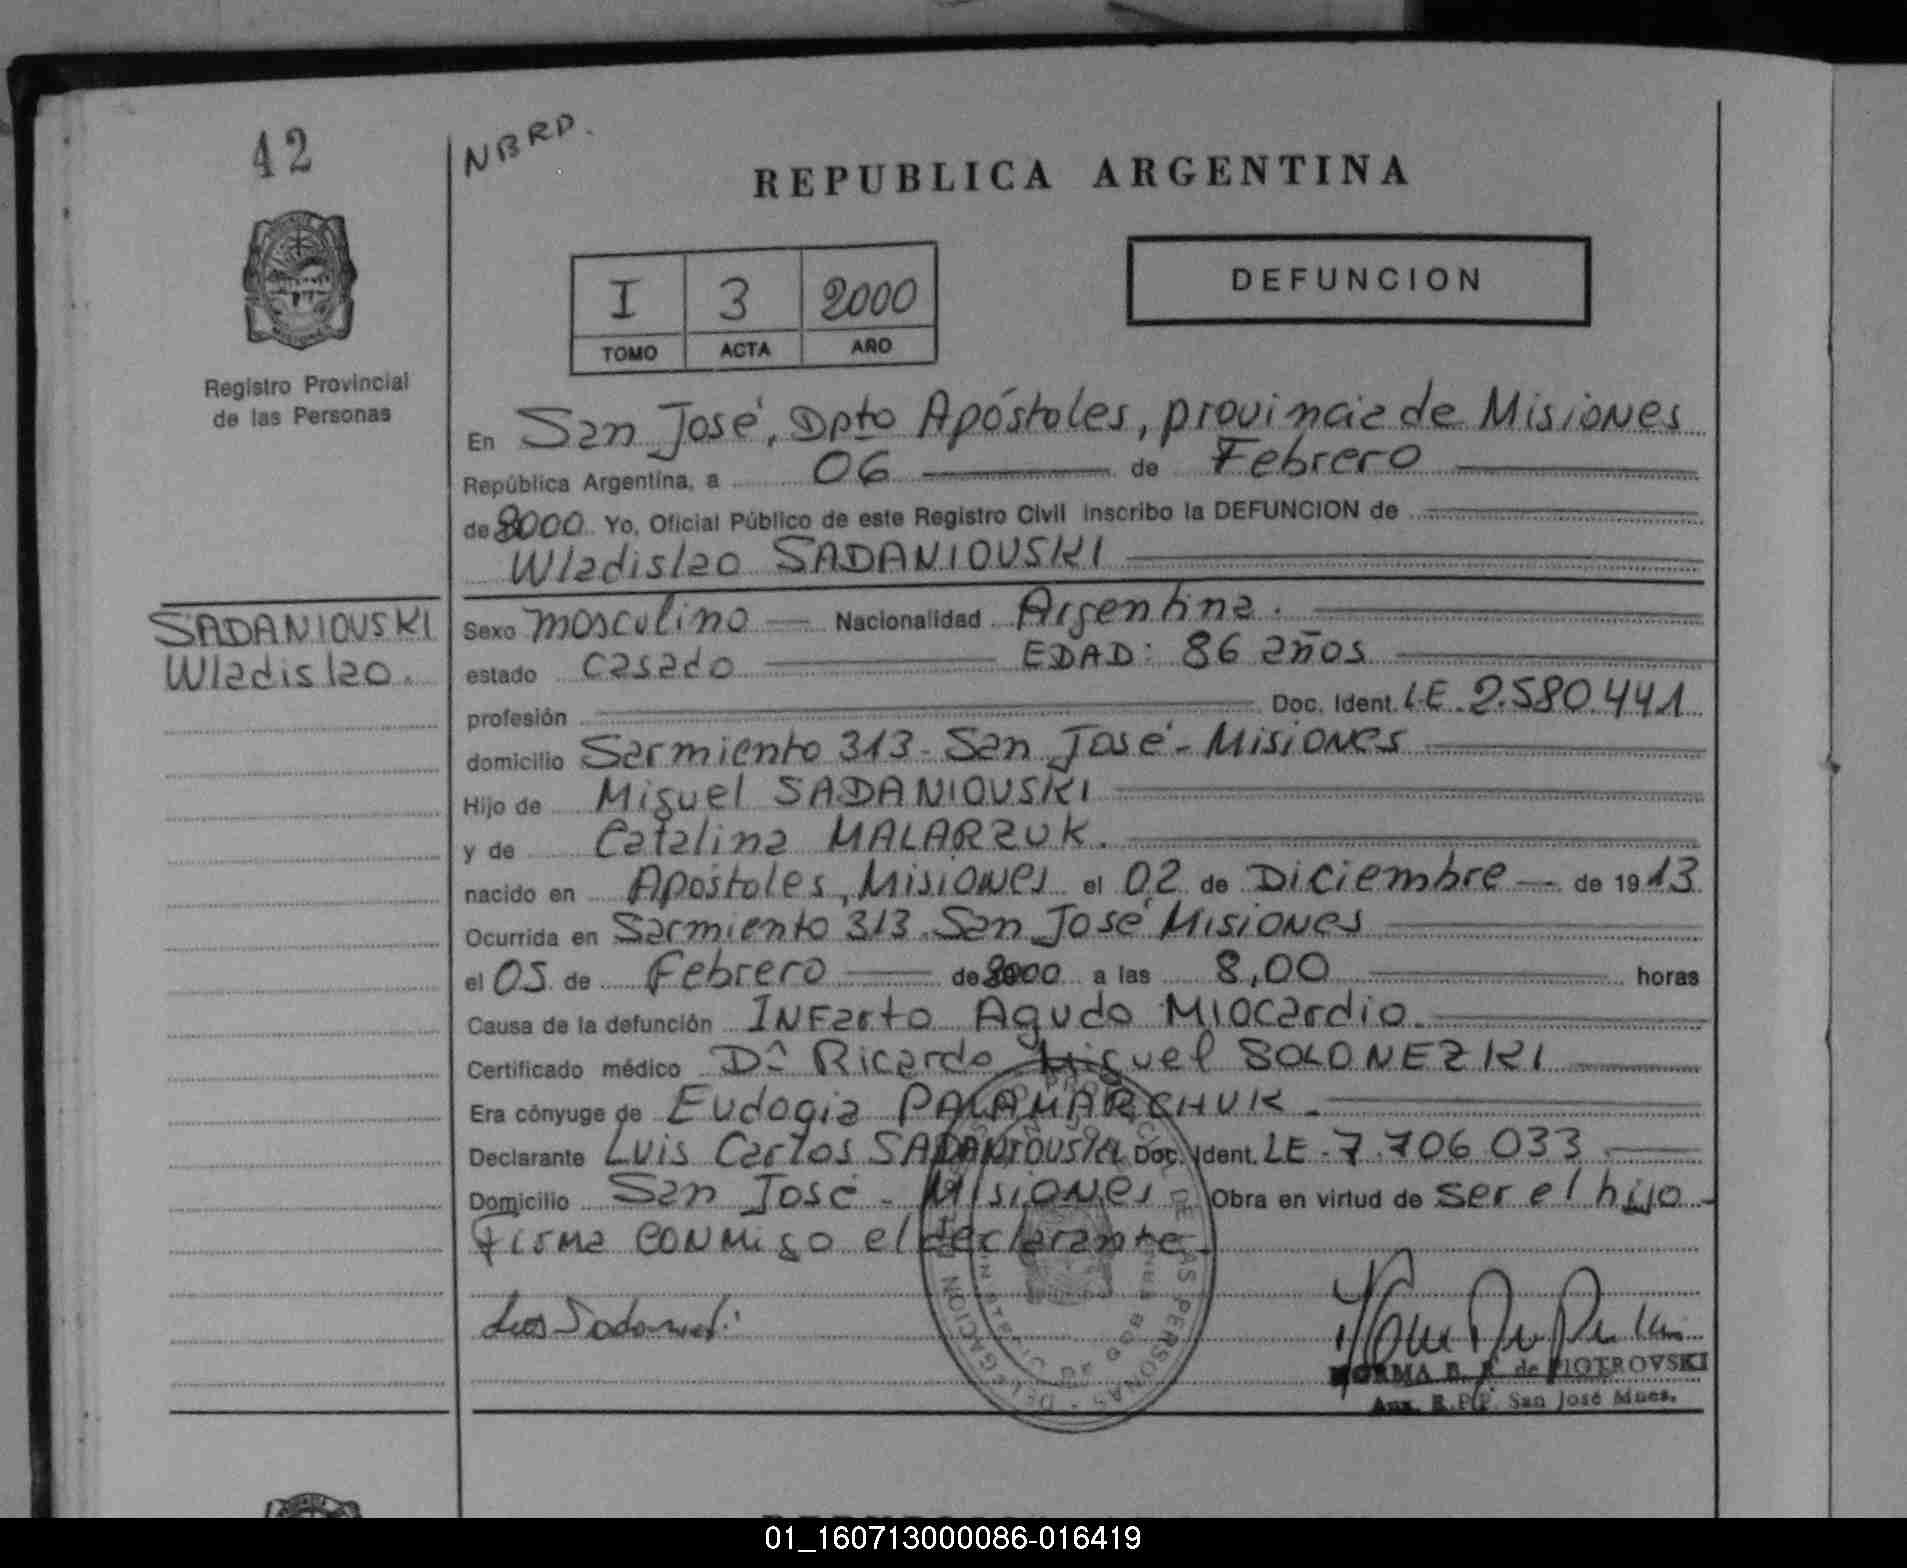 42
NBRD.
REPUBLICA ARGENTINA
I 3 2000
TOMO ACTA AÑO
DEFUNCION
Registro Provincial
de las Personas
En San José, Dpto Apóstoles, provincia de Misiones
República Argentina, a 06 de Febrero
de 2000 Yo, Oficial Público de este Registro Civil inscribo la DEFUNCION de
Wladislao SADANIOUSKI
SADANIOUSKI
Wladislao.
Sexo masculino Nacionalidad Argentina.
estado casado EDAD: 86 años
profesión Doc. Ident. LE. 2.580.441
domicilio Sarmiento 313 - San José - Misiones
Hijo de Miguel SADANIOUSKI
y de Catalina MALARZUK.
nacido en Apóstoles, Misiones el 02 de Diciembre de 1913
Ocurrida en Sarmiento 313 - San José Misiones
el 05 de Febrero de 2000 a las 8,00 horas
Causa de la defunción INFarto Agudo Miocardio.
Certificado médico Dr Ricardo Miguel SOLONEZKI
Era cónyuge de Eudogia PALAMARCHUK.
Declarante Luis Carlos SADANIOUSKI Doc. Ident. LE - 7.706.033
Domicilio San José - Misiones Obra en virtud de ser el hijo -
Firma conmigo el declarante.
NORMA B. de PIOTROVSKI
Aux. R.P.P. San José Mnes.
01_160713000086-016419